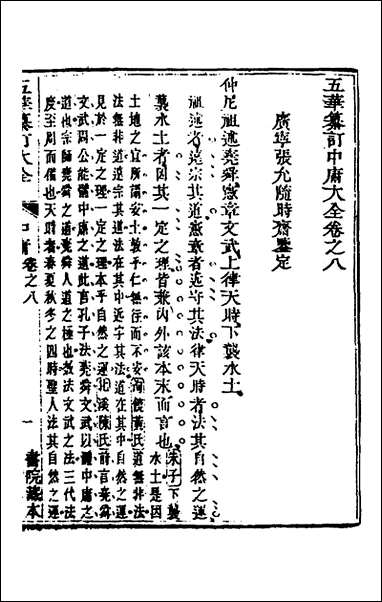 五華纂訂中庸大全卷之八
廣寧張允隨時齋鑒定
仲尼祖述堯舜憲章文武上律天時下襲水土
祖述者遠宗其道憲章者近守其法律天時者法其自然之運
襲水土者因其一定之理皆兼內外該本末而言也 朱子下襲水土是因
土地之宜所謂安土敦乎仁無往而不安 饒黃氏道無非法
法無非道遠宗其道法在其中近守其法道在其中法自然之運
見於一定之理一定之理本乎自然之運 北溪陳氏前言堯舜
文武周公能體中庸之道此言孔子法堯舜文武以體中庸之
道也宗師堯舜之道堯舜人道之極也效法文武之法三代法
度至周而備也天時者春夏秋冬之四時聖人法其自然之運
五華纂訂大全
中庸卷之八
一
書院藏本